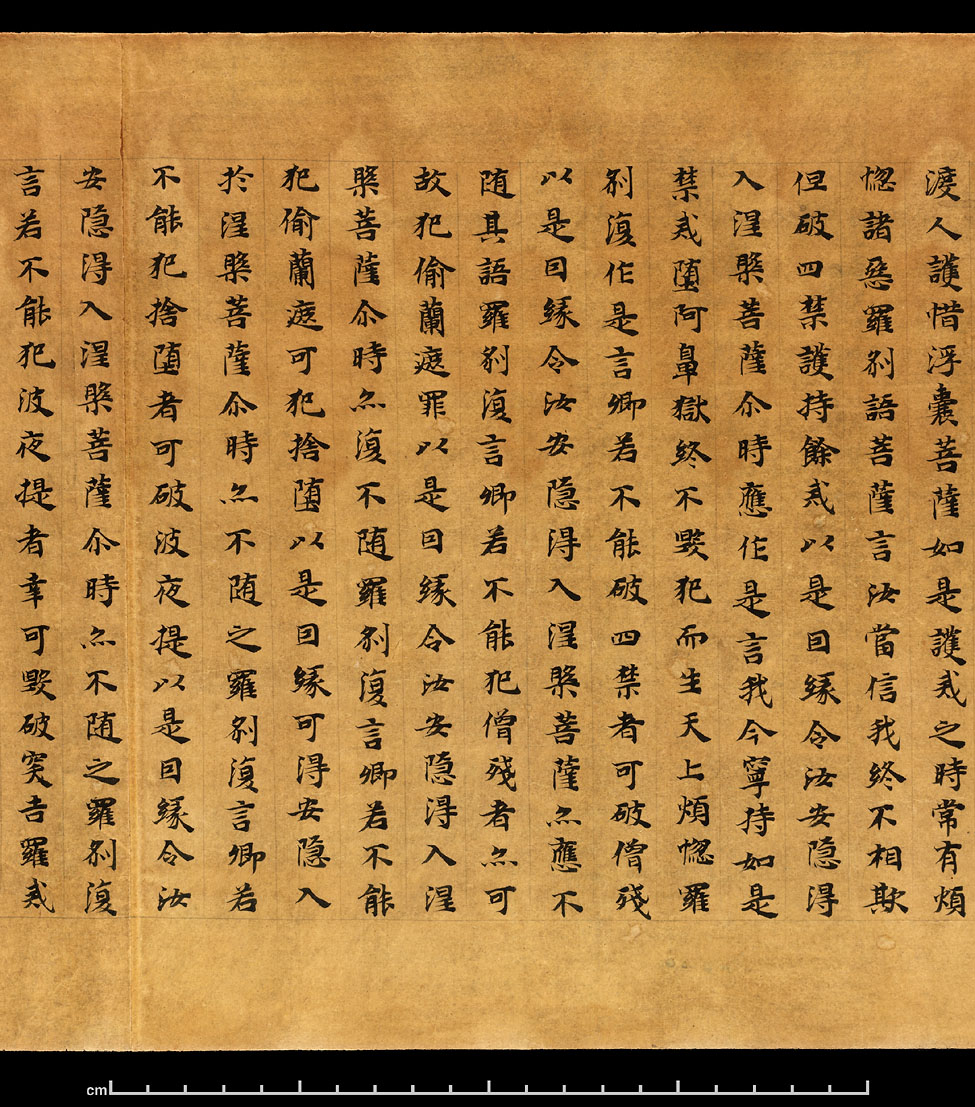 渡人護惜浮囊菩薩如是護戒之時常有煩
惚諸惡羅刹語菩薩言汝當信我終不相欺
但破四禁護持餘戒以是因緣令汝安隱得
入涅槃菩薩尒時應作是言我今寧持如是
禁戒墮阿鼻獄終不毀犯而生天上煩惚羅
刹復作是言卿若不能破四禁者可破僧殘
以是因緣令汝安隱得入涅槃菩薩亦應不
随其語羅刹復言卿若不能犯僧殘者亦可
故犯偷蘭遮罪以是因緣令汝安隱得入涅
槃菩薩尒時亦復不随羅刹復言卿若不能
犯偷蘭遮可犯捨墮以是因緣可得安隱入
於涅槃菩薩尒時亦不随之羅刹復言卿若
不能犯捨墮者可破波夜提以是因緣令汝
安隱得入涅槃菩薩尒時亦不随之羅刹復
言若不能犯波夜提者幸可毀破突吉羅戒
cm